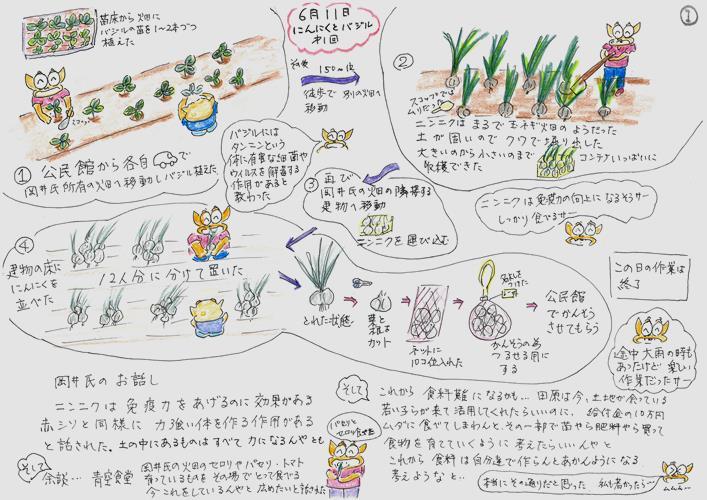 6月11日
にんにくとバジル
オ1回
①
苗床から畑に
バジルの苗を1～2本づつ
植えた
スコップ
① 公民館から各自 で
岡井氏所有の畑へ移動しバジル植えた
バジルには
タンニンという
体に有害な細菌や
ウイルスを解毒する
作用があると
教わった
150m位
徒歩で別の畑へ
移動
②
スコップでは
ムリだった
ニンニクはまるで玉ネギ畑のようだった
土が固いのでクワで掘り出した
大きいのから小さいのまで
収穫できた
コンテナいっぱいに
ニンニクは免疫力の向上になるそうサー
しっかり食べるサー
③ 再び
岡井氏の畑の隣接する
建物へ移動
ニンニクを運び込む
④
建物の床に
にんにくを
並べた
12人分に分けて置いた
とれた状態
茎と
根は
カット
ネットに
10コ位入れた
名札を
つけた
かんそうのあ
つるせる用に
する
公民館
でかんそう
させてもらう
この日の作業は
終了
途中大雨の時も
あったけど楽しい
作業だったサー
岡井氏のお話し
ニンニクは免疫力をあげるのに効果がある
赤シソと同様に力強い体を作る作用がある
と話された。土の中にあるものはすべて力になるんやとも
そして
余談… 青空食堂
岡井氏の畑のセロリやパセリ・トマト
育っているものをその場でとって食べる
今これをしているんやと広めたいと話された
パセリと
セロリ食べた
そして
これから食料難になるかも… 田原は今、土地が余っている
若い子らが来て活用してくれたらいいのに、給付金の10万円
ムダに食べてしまわんと、その一部で苗やら肥料やら買って
食物を育てていくように考えたらいいんやと
これから食料は自分達で作らんとあかんようになる
考えような と…
本当にその通りだと思った 私も考えたろ…
ムムム…